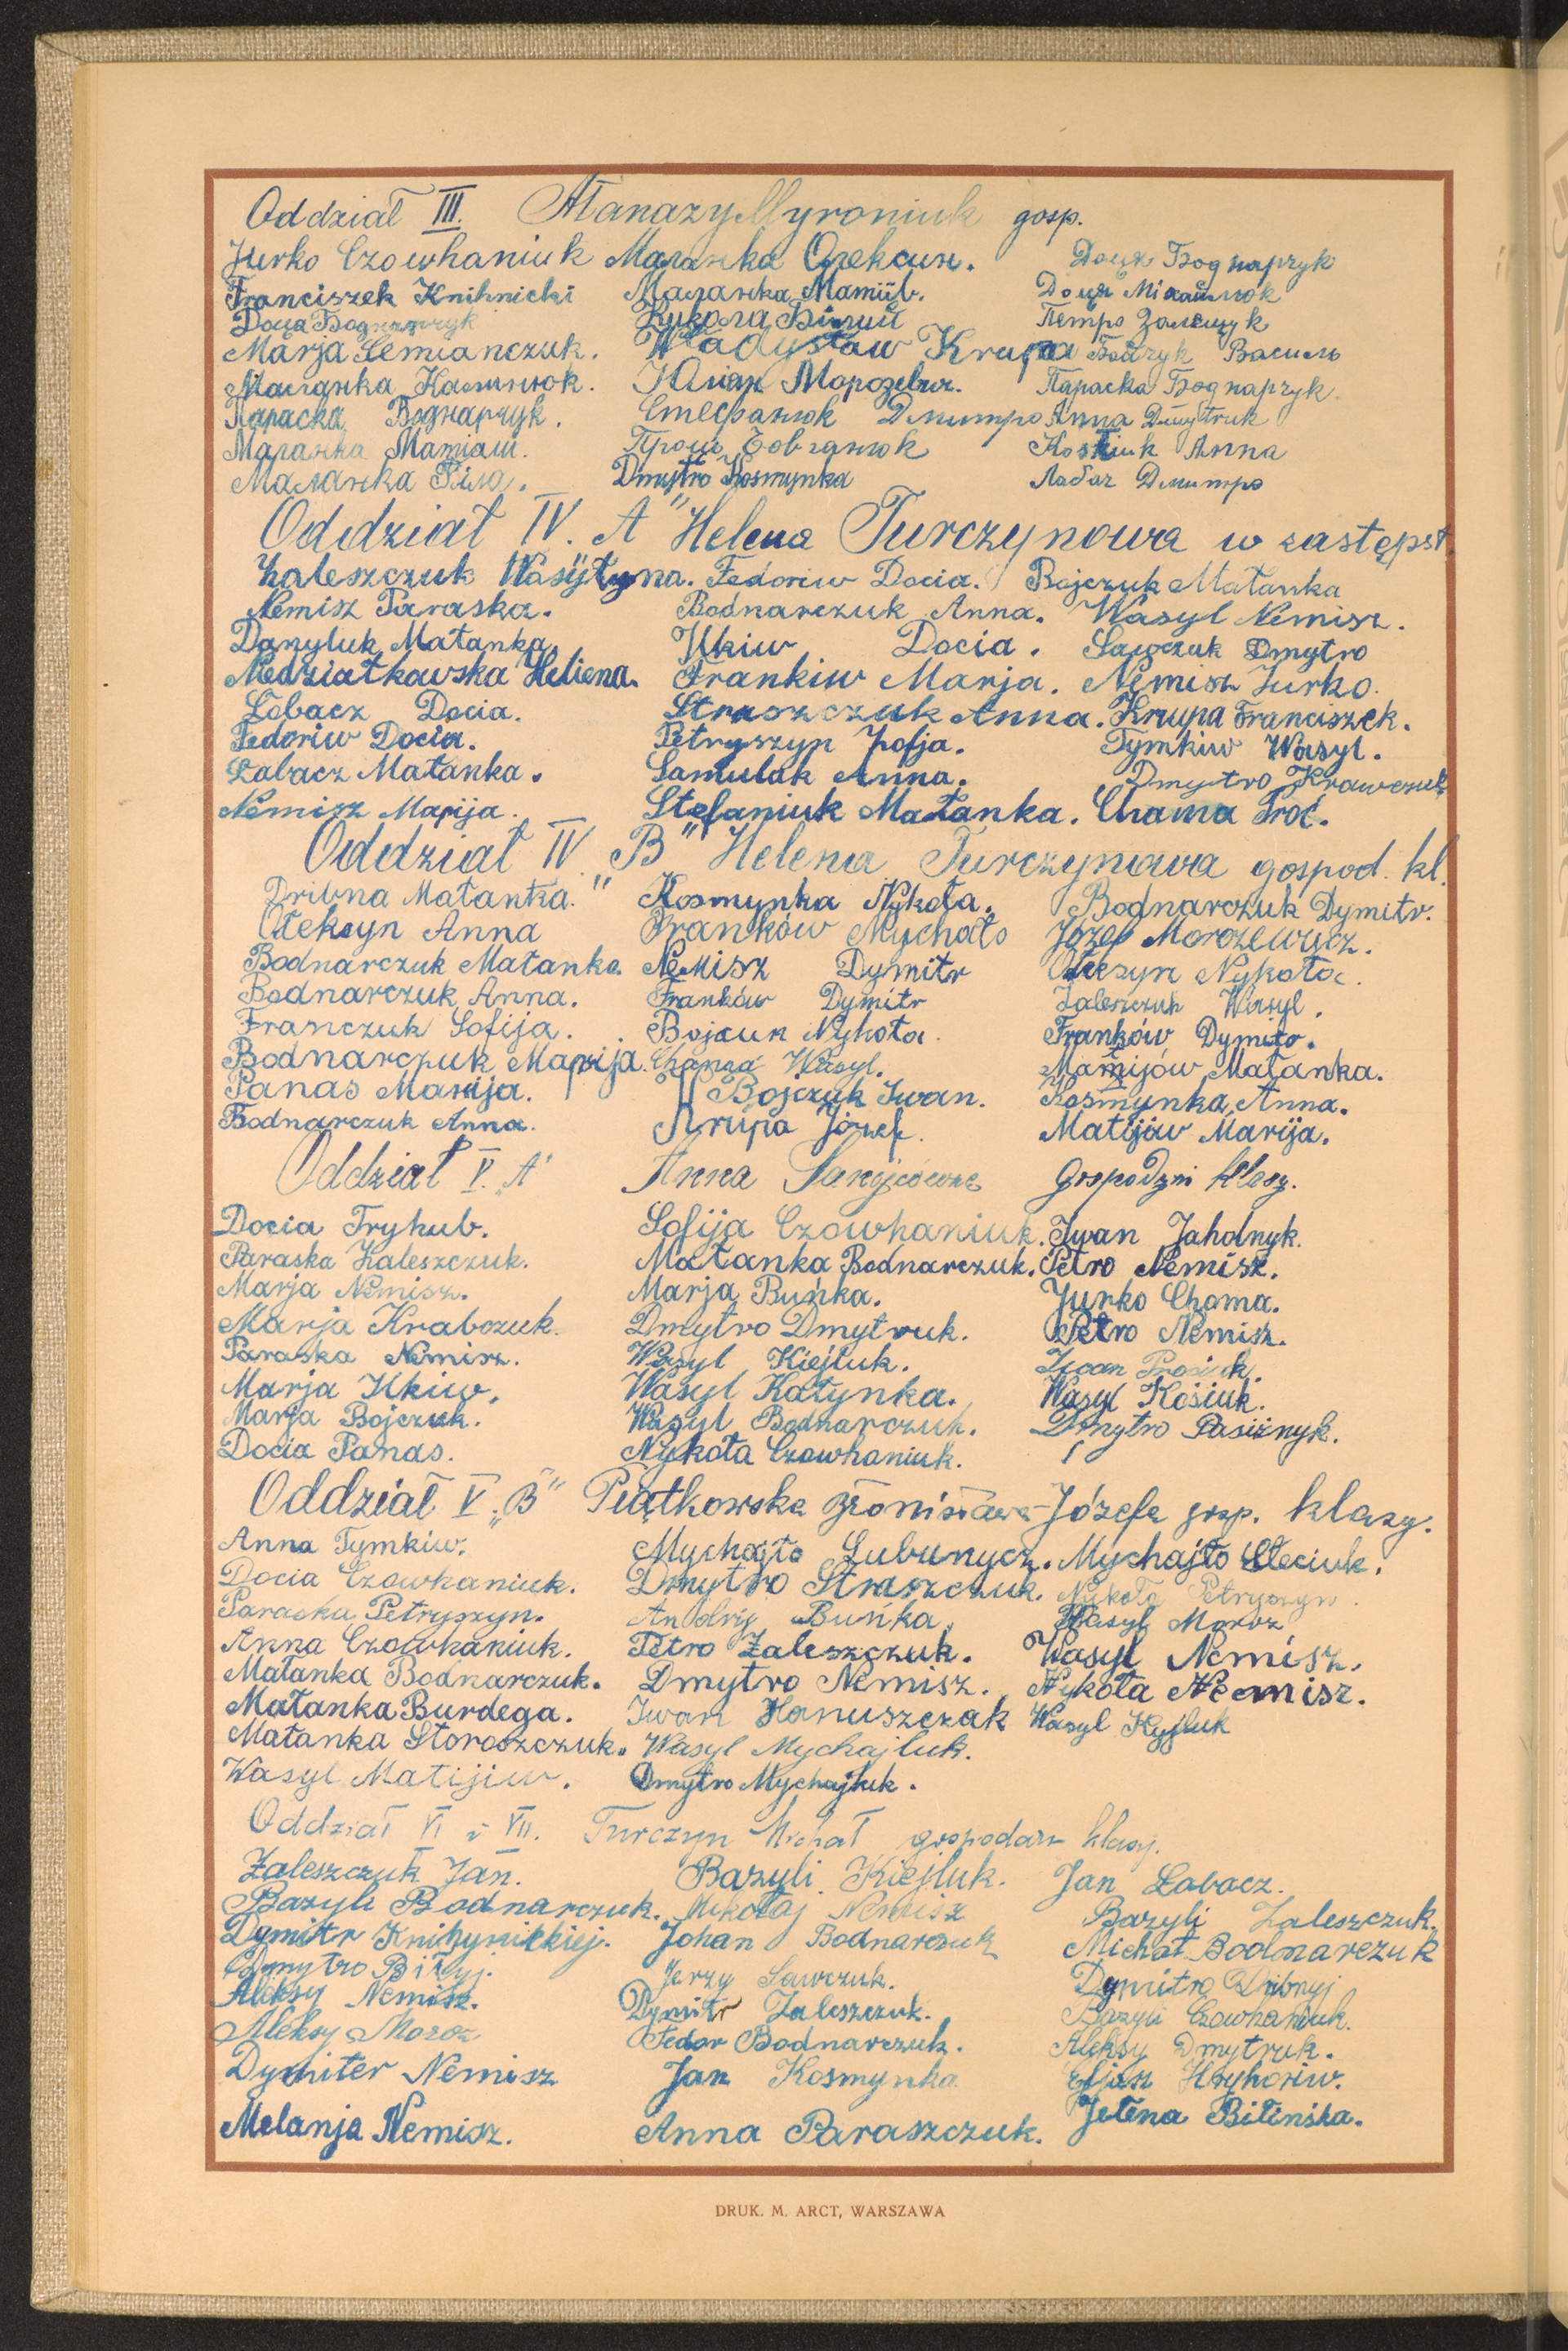 Oddział III. Atanazy Myroniuk gosp.
Jurko Czowhaniuk Маланка Олексин. Доця Боднарчук
Franciszek Knihnicki Маланка Матіїв. Доця Міхайлюк
Доця Боднарчук Микола Білий Петро Залещук
Marja Semianczuk. Władysław Krupa Бойчук Василь
Маланка Калинюк. Юліян Морозевич. Параска Боднарчук.
Параска Боднарчук. Стефанюк Дмитро Anna Dmytruk
Маланка Матіаш. Гроць Kostiuk Anna
Маланка Dmytro Kosmynka Лабач Дмитро
Oddział IV. A" Helena Turczynowa w zastępst.
Zaleszczuk Wasyłyna. Fedoriw Docia. Bojczuk Małanka
Nemisz Paraska. Bodnarczuk Anna. Wasyl Nemisz.
Danyluk Małanka. Ilkiw Docia. Sawczuk Dmytro
Niedziałkowska Heliena. Frankiw Marja. Nemisz Jurko.
Łobacz Docia. Straszczuk Anna. Krupa Franciszek.
Fedoriw Docia. Petryszyn Zofja. Tymkiw Wasyl.
Łabacz Małanka. Samulak Anna. Dmytro Krawczuk
Nemisz Marija. Stefaniuk Małanka. Chama Proć.
Oddział IV „B" Helena Turczynowa gospod. kl.
Dribna Małanka. Kosmynka Nykoła. Bodnarczuk Dymitr.
Ołeksyn Anna Franków Mychało Józef Morozewycz.
Bodnarczuk Małanka. Nemisz Dymitr Ołeksyn Nykoła.
Bodnarczuk Anna. Franków Dymitr Zaleszczuk Wasyl.
Franczuk Sofija. Bojczuk Nykoła. Franków Dymitr.
Bodnarczuk Marija. Chama Wasyl. Matijów Małanka.
Panas Marija. Bojczuk Iwan. Kosmynka Anna.
Bodnarczuk Anna. Krupa Józef. Matijów Marija.
Oddział V. „A" Anna Gospodyni klasy.
Docia Tryhub. Sofija Czowhaniuk. Iwan Jahdnyk.
Paraska Zaleszczuk. Małanka Bodnarczuk. Petro Nemisz.
Marja Nemisz. Marja Buńka. Jurko Choma.
Marja Krabczuk. Dmytro Dmytruk. Petro Nemisz.
Paraska Nemisz. Wasyl Kiejluk. Iwan
Marja Ilkiw. Wasyl Kałynka. Wasyl Kosiuk.
Marja Bojczuk. Wasyl Bodnarczuk. Dmytro Pasiżnyk.
Docia Panas. Nykoła Czowhaniuk.
Oddział V „B" Piątkowska Bronisława-Józefa gosp. klasy.
Anna Tymkiw. Mychajło Lubunycz. Mychajło Steciuk.
Docia Czowhaniuk. Dmytro Straszczuk. Nykoła Petryszyn.
Paraska Petryszyn. Andrij Buńka. Wasyl Moroz
Anna Czowhaniuk. Petro Zaleszczuk. Wasyl Nemisz.
Małanka Bodnarczuk. Dmytro Nemisz. Nykoła Nemisz.
Małanka Burdega. Iwan Hanuszczak Wasyl Kyjluk
Małanka Storoszczuk. Wasyl Mychajluk.
Wasyl Matijiw. Dmytro Mychajluk.
Oddział VI i VII. Turczyn Michał gospodarz klasy.
Zaleszczuk Jan. Bazyli Kiejluk. Jan Łobacz.
Bazyli Bodnarczuk. Mikołaj Nemisz Bazyli Zaleszczuk.
Dymitr Knihynickiej. Johan Bodnarczuk Michał Bodnarczuk
Dmytro Biłyj. Jerzy Sawczuk. Dymitro Dribnyj
Aleksy Nemisz. Dymitr Zaleszczuk. Bazyli Czowhaniuk.
Aleksy Moroz Fedor Bodnarczuk. Aleksy Dmytruk.
Dymiter Nemisz Jan Kosmynka Eljasz Hryhoriw.
Melanja Nemisz. Anna Paraszczuk. Jelena Bilińska.
DRUK. M. ARCT, WARSZAWA